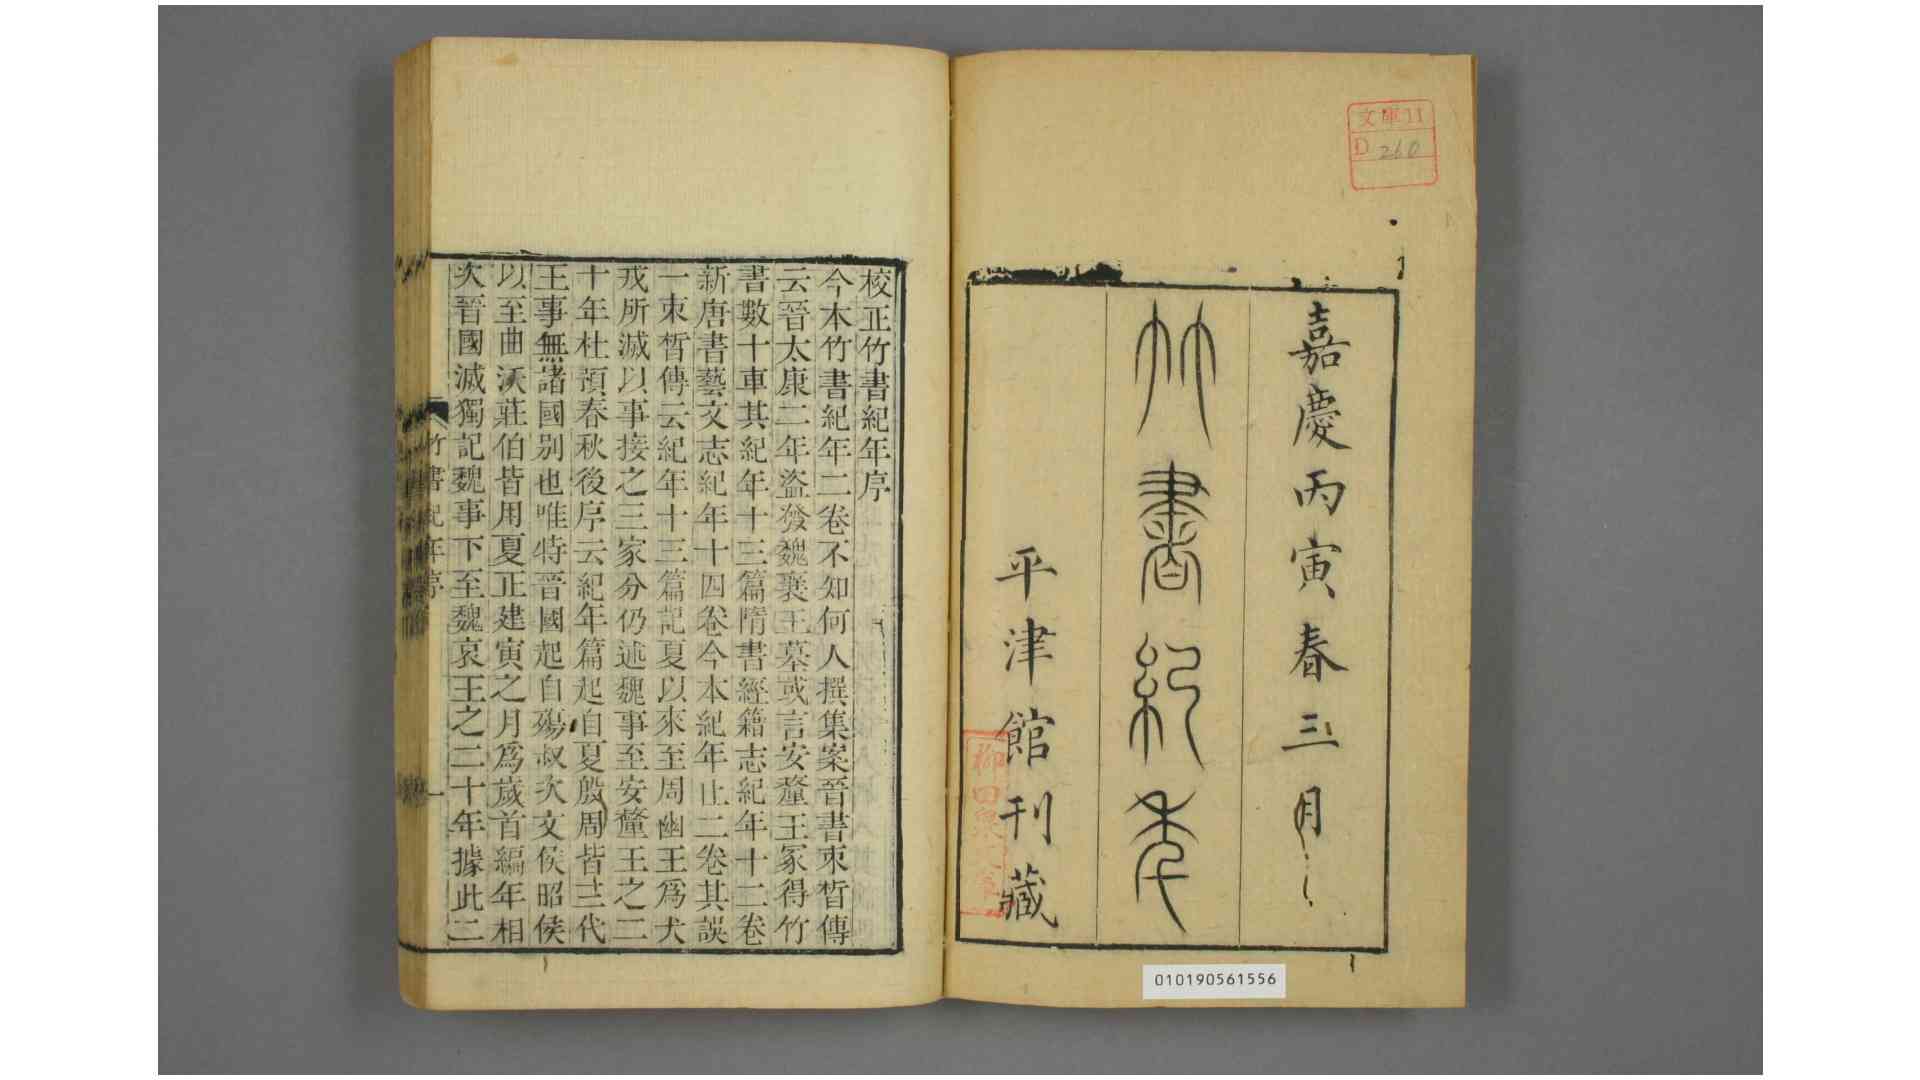 文庫11
D 260
嘉慶丙寅春三月
竹書紀年
平津館刊藏
010190561556
校正竹書紀年序
今本竹書紀年二卷不知何人撰集案晉書束晳傳
云晉太康二年盜發魏襄王墓或言安釐王冢得竹
書數十車其紀年十三篇隋書經籍志紀年十二卷
新唐書藝文志紀年十四卷今本紀年止二卷其誤
一束晳傳云紀年十三篇記夏以來至周幽王爲犬
戎所滅以事接之三家分仍述魏事至安釐王之二
十年杜預春秋後序云紀年篇起自夏殷周皆三代
王事無諸國别也唯特晉國起自殤叔次文侯昭侯
以至曲沃莊伯皆用夏正建寅之月爲歲首編年相
次晉國滅獨記魏事下至魏哀王之二十年據此二
竹書紀年序
一